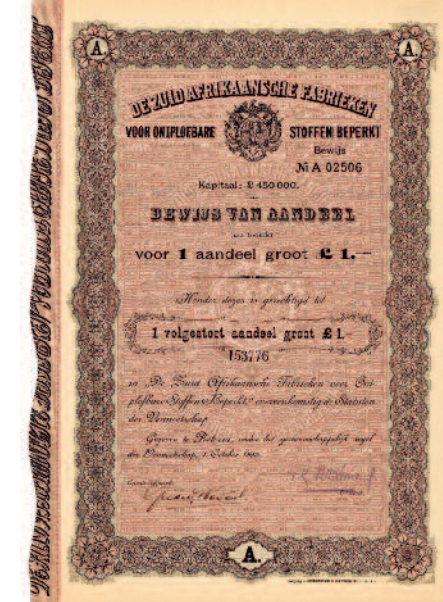 A.
A.
DE ZUID AFRIKAANSCHE FABRIEKEN
VOOR ONTPLOFBARE STOFFEN BEPERKT
Bewijs
№ A 02506
Kapitaal: £ 450000.
BEWIJS VAN AANDEEL
aan toonder
voor 1 aandeel groot £ 1.—
Houder dezes is gerechtigd tot
1 volgestort aandeel groot £ 1.
153776
in "De Zuid Afrikaansche Fabrieken voor Ont-
plofbare Stoffen Beperkt" overeenkomstig de Statuten
der Vennootschap.
Gegeven te Pretoria, onder het gemeenschappelijk zegel
der Vennootschap, 1 October
A.